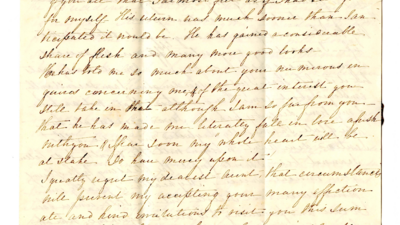 for myself. His return was much sooner than I an
ticipated it would be. He has gained a considerable
share of flesh and many more good looks
He has told me so much about your numerous in
quiries concerning me & of the great interest you
still take in me that although I am so far from you
that he has made me literally fall in love afresh
with you & I fear soon my whole heart will be
at stake. So have mercy upon it.
I greatly regret my dearest Aunt that circumstances
will prevent my accepting your many affection
ate and kind invitations to visit you this sum